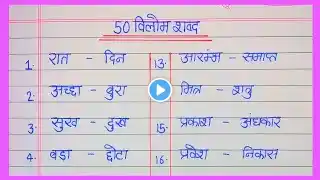 50 विलोम शब्द
1. रात - दिन
2. अच्छा - बुरा
3. सुख - दुख
4. बड़ा - छोटा
13. आरम्भ - समाप्त
मित्र - शत्रु
15. प्रकाश - अंधकार
16. प्रवेश - निकास